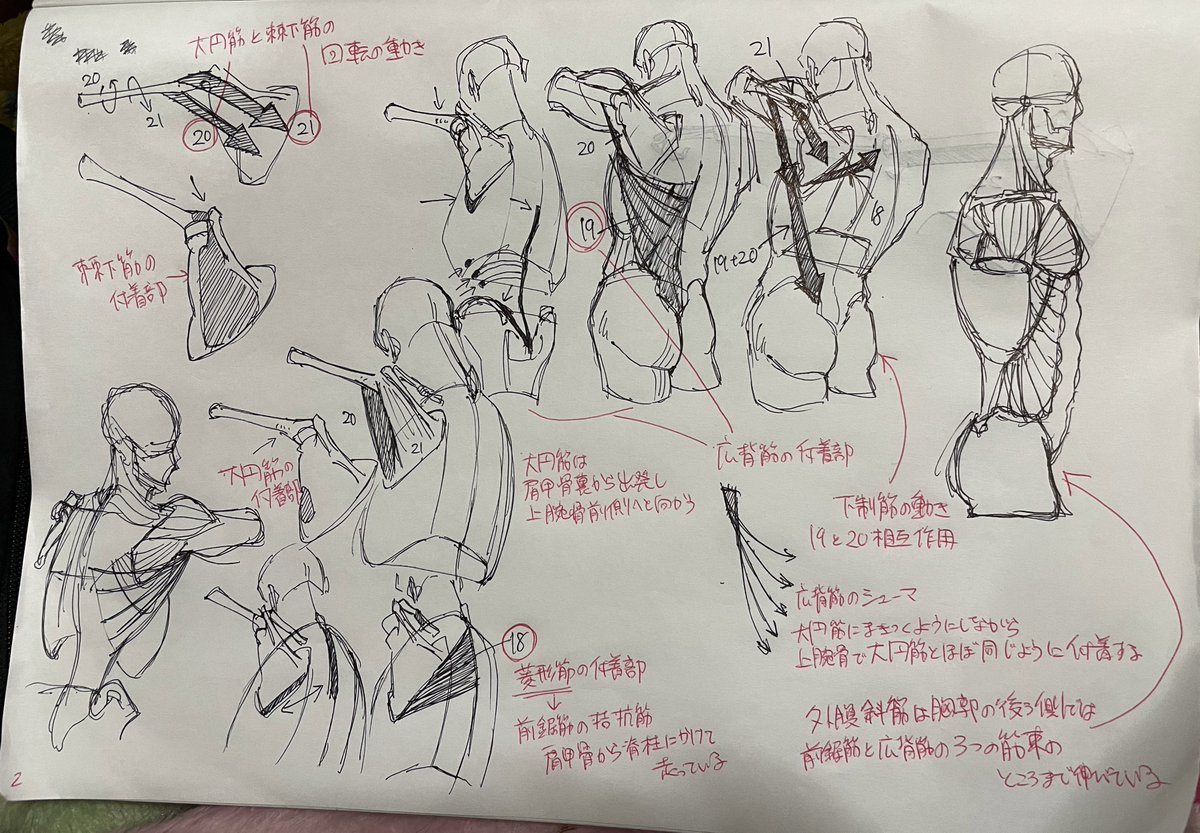 大円筋と棘下筋の
回転の動き
20
21
20
21
棘下筋の
付着部
大円筋の
付着部
20
21
大円筋は
肩甲骨裏から出発し
上腕骨前側へと向かう
20
19
21
18
19+20
広背筋の付着部
下制筋の動き
19と20相互作用
広背筋のシェーマ
大円筋にまきつくようにしながら
上腕骨で大円筋とほぼ同じように付着する
18
菱形筋の付着部
前鋸筋の拮抗筋
肩甲骨から脊柱にかけて
走っている
外腹斜筋は胸郭の後ろ側では
前鋸筋と広背筋の3つの筋束の
ところまで伸びている
2